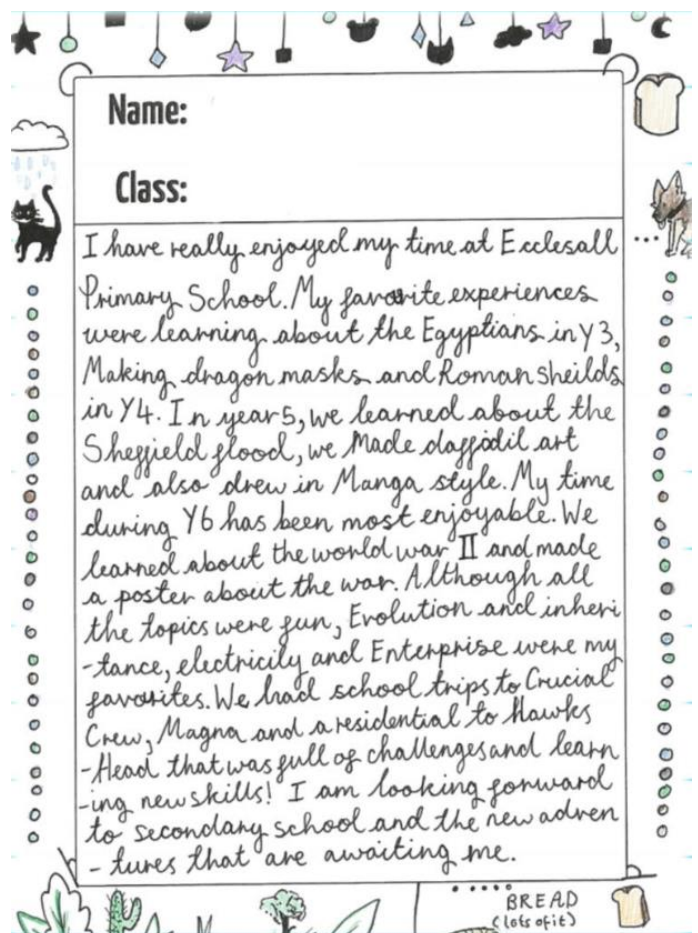 Name:
Class:
I have really enjoyed my time at Ecclesall
Primary School. My favorite experiences
were learning about the Egyptians in Y3,
Making dragon masks and Roman sheilds
in Y4. In year 5, we learned about the
Sheffield flood, we Made daffodil art
and also drew in Manga style. My time
during Y6 has been most enjoyable. We
learned about the world war II and made
a poster about the war. Although all
the topics were fun, Evolution and inheri
-tance, electricity and Enterprise were my
favorites. We had school trips to Crucial
Crew, Magna and a residential to Hawks
-Head that was full of challenges and learn
-ing new skills! I am looking forward
to secondary school and the new adven
-tures that are awaiting me.
BREAD
(lots of it)